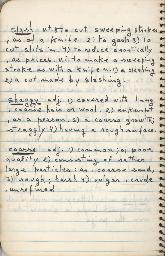 slash v.t. 1) to cut sweeping strokes
, as of a knife. 2) to gash 3) to
cut slits in. 4) to reduce drastically
, as prices. v.i. to make a sweeping
stroke as with a knife. n. 1) a slashing
2) a cut made by slashing.
shaggy adj. 1) covered with long
, coarse hair or wool. 2) unkempt
, as a person. 3) a coarse growth;
straggly 4) having a rough surface
coarse adj. 1) common; of poor
quality 2) consisting of rather
large particles; as, coarse sand.
3) rough; harsh 4) vulgar, crude
, unrefined